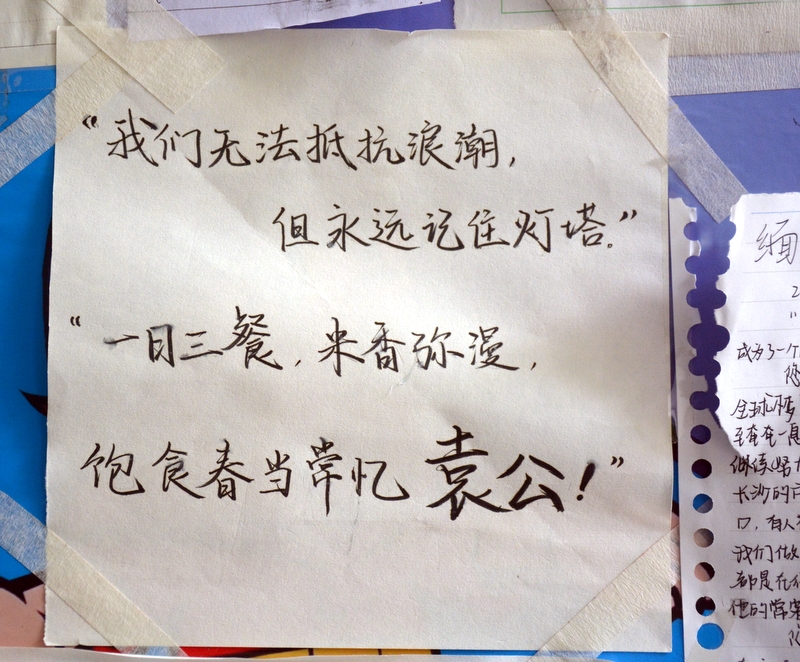 “我们无法抵抗浪潮，
但永远记住灯塔。”
“一日三餐，米香弥漫，
饱食春当常忆袁公！”
缅
成为了一个
全球
至奄奄一息
继续努
长沙的
口，有人
我们做
都是在
他的常